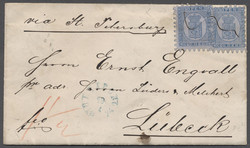 via St. Petersburg
Herrn Ernst Engvall
pr adr. Herren Lüders & Melchert
fco
Lübeck